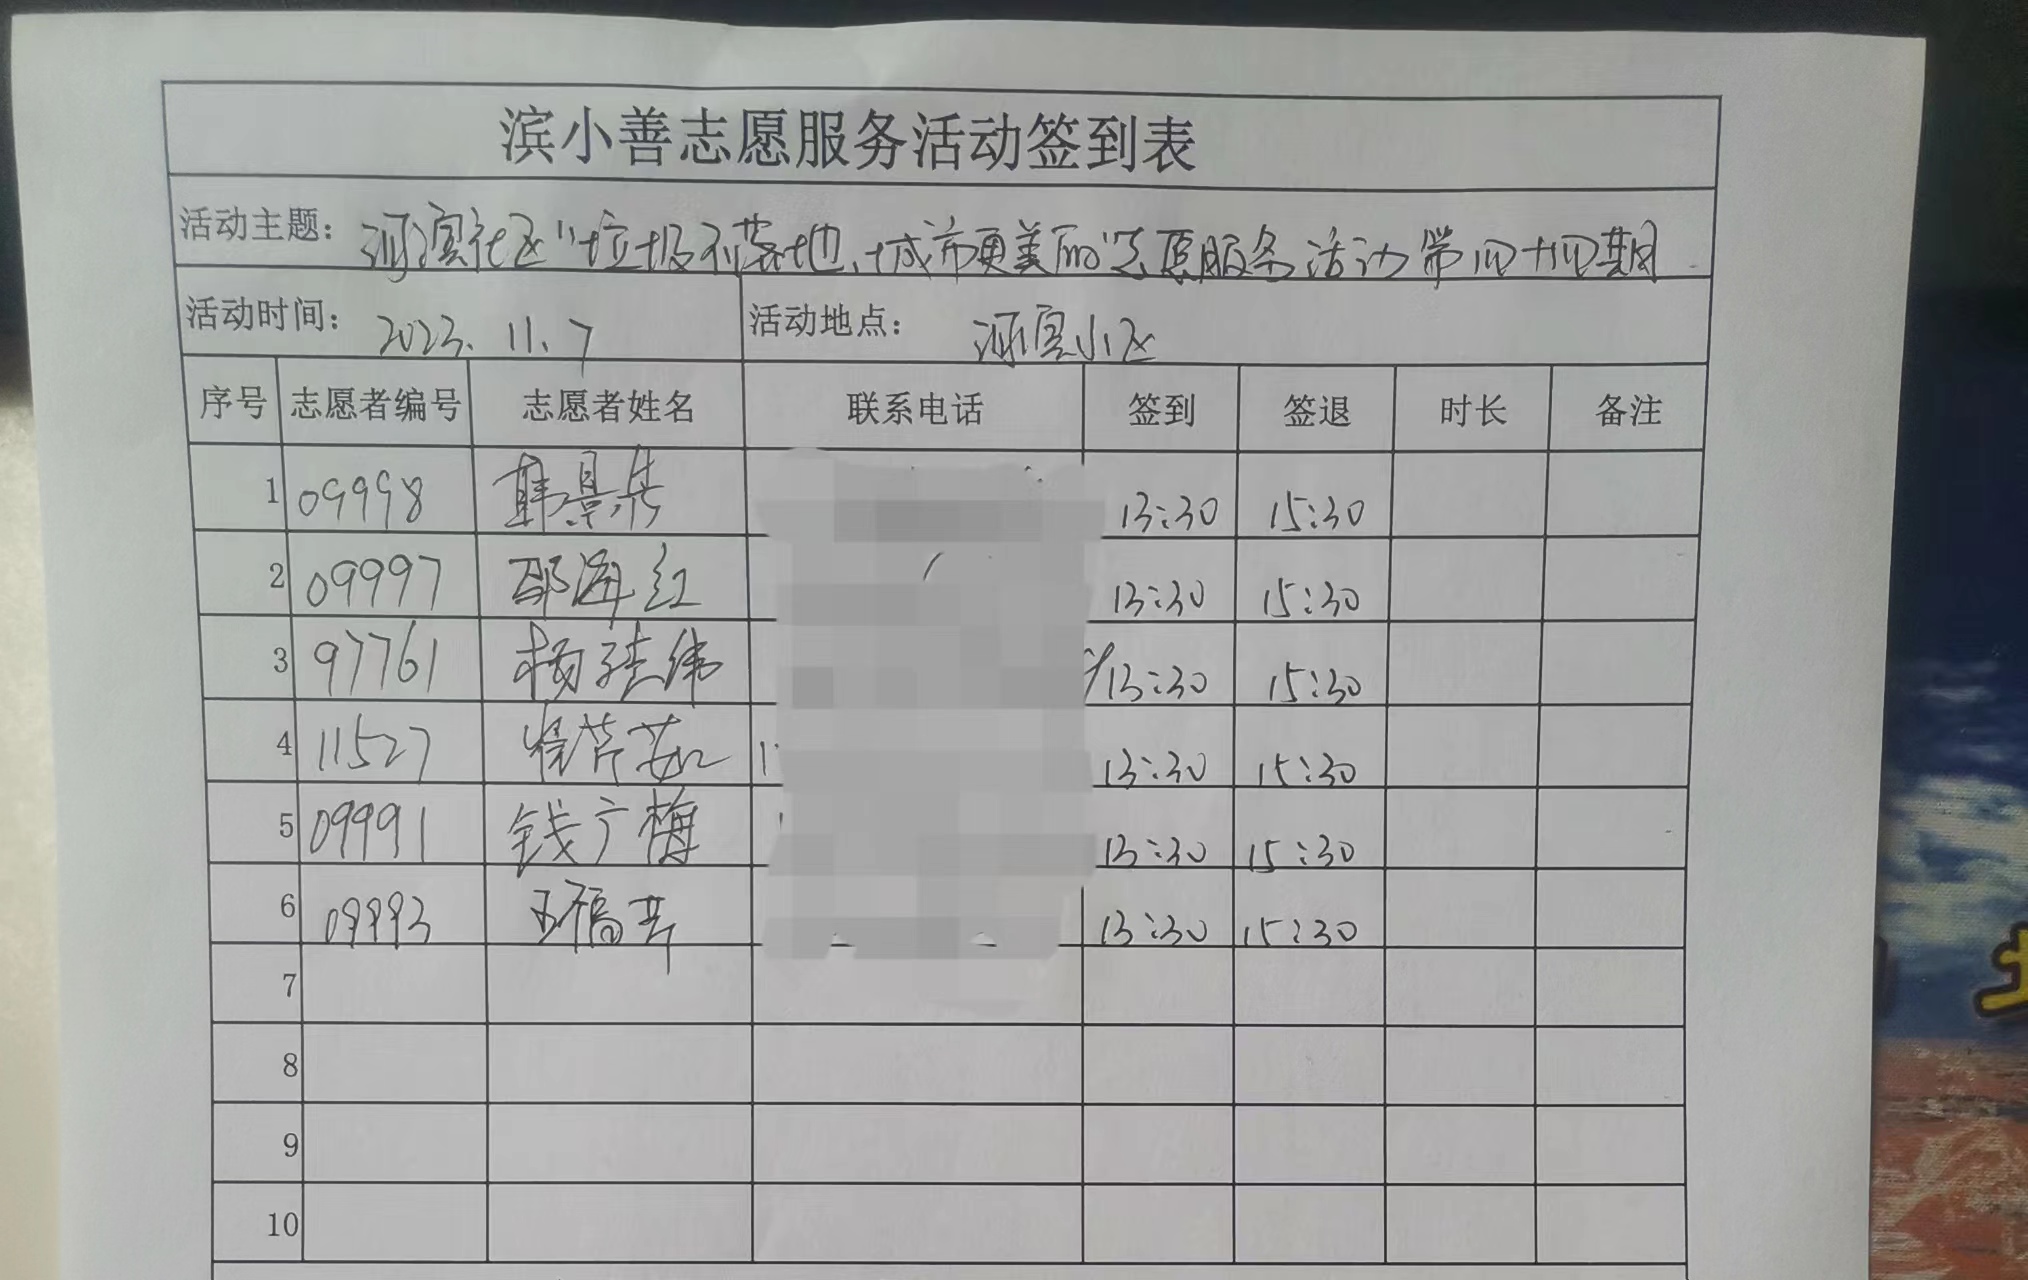 滨小善志愿服务活动签到表
活动主题：河滨社区"垃圾不落地、城市更美丽"志愿服务活动第四十四期
活动时间：2023.11.7 活动地点：河滨小区
序号 志愿者编号 志愿者姓名 联系电话 签到 签退 时长 备注
1 09998 韩景 13:30 15:30
2 09997 邵海红 13:30 15:30
3 97761 杨 伟 13:30 15:30
4 11527 13:30 15:30
5 09991 钱广梅 13:30 15:30
6 09993 王福 13:30 15:30
7
8
9
10